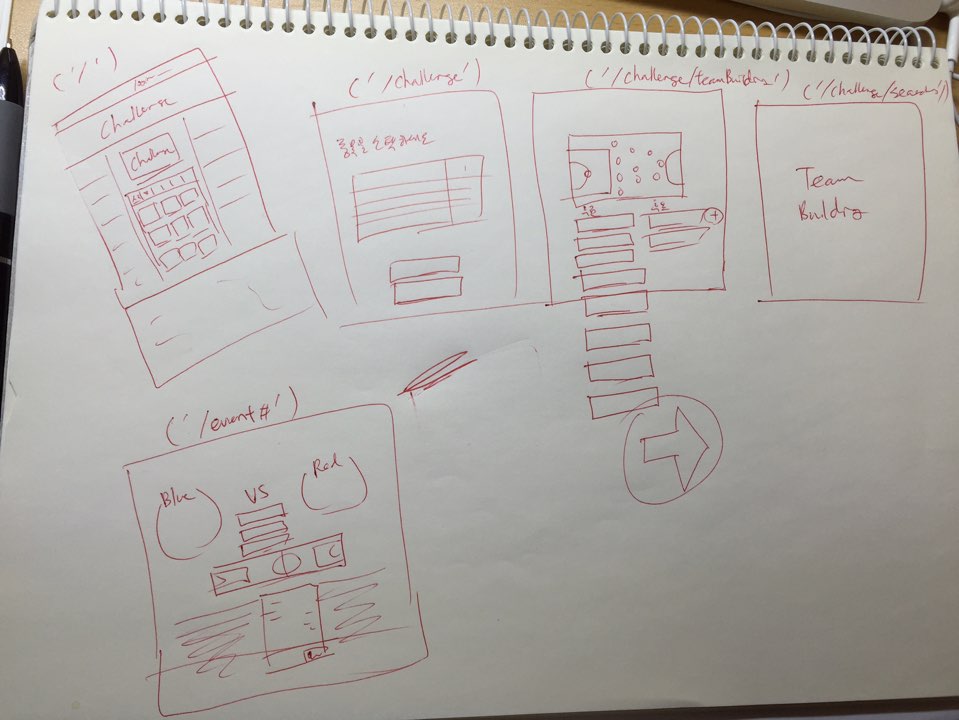 ('/')
Challenge
Challenge
('/challenge')
종목을 선택하세요
('/challenge/teamBuilding')
('/challenge/search')
Team
Building
('/event#')
Blue
VS
Red